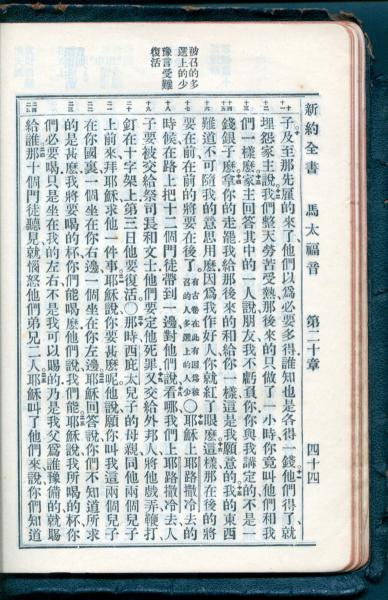 新約全書 馬太福音 第二十章 四十四
被召的多
選上的少
豫言受難
復活
子及至那先雇的來了他們以爲必要多得誰知也是各得一錢他們得了就
埋怨家主說我們整天勞苦受熱那後來的只做了一小時你竟叫他們和我
們一樣麼家主回答其中的一人說朋友我不虧負你你與我講定的不是一
錢銀子麼拿你的走罷我給那後來的和給你一樣這是我願意的我的東西
難道不可隨我的意思用麼因爲我作好人你就紅了眼麼這樣那在後的將
要在前在前的將要在後了有古卷在此有因爲被召的人多選上的人少○耶穌上耶路撒冷去的
時候在路上把十二個門徒帶到一邊對他們說看哪我們上耶路撒冷去人
子要被交給祭司長和文士他們要定他死罪又交給外邦人將他戲弄鞭打
釘在十字架上第三日他要復活○那時西庇太兒子的母親同他兩個兒子
上前來拜耶穌求他一件事耶穌說你要甚麼呢他說願你叫我這兩個兒子
在你國裏一個坐在你右邊一個坐在你左邊耶穌回答說你們不知道所求
的是甚麼我將要喝的杯你們能喝麼他們說我們能耶穌說我所喝的杯你
們必要喝只是坐在我的左右不是我可以賜的乃是我父爲誰豫備的就賜
給誰那十個門徒聽見就惱怒他們弟兄二人耶穌叫了他們來說你們知道